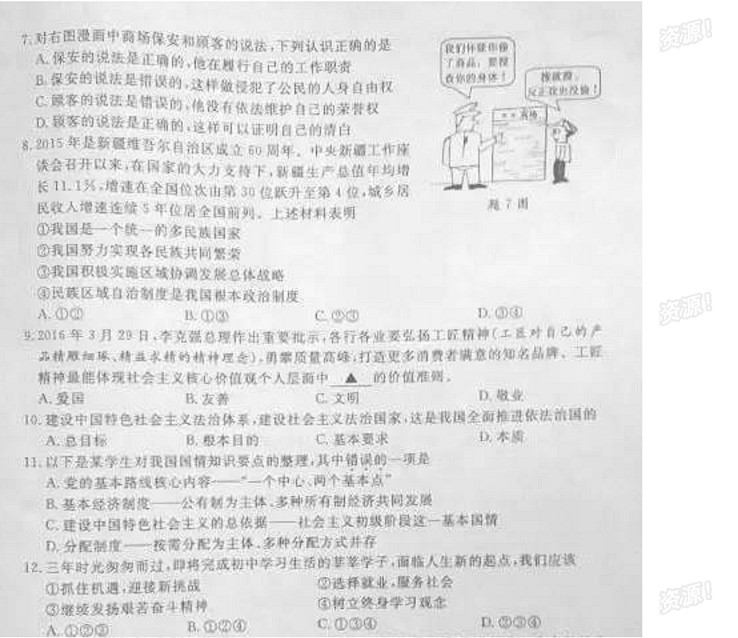 7.对右图漫画中商场保安和顾客的说法,下列认识正确的是
A.保安的说法是正确的,他在履行自己的工作职责
B.保安的说法是错误的,这样做侵犯了公民的人身自由权
C.顾客的说法是错误的,他没有依法维护自己的荣誉权
D.顾客的说法是正确的,这样可以证明自己的清白
我们怀疑你偷
了商品,要搜
查你的身体!
搜就搜,
反正我也没偷!
题7图
8.2015年是新疆维吾尔自治区成立60周年。中央新疆工作座
谈会召开以来,在国家的大力支持下,新疆生产总值年均增
长11.1%,增速在全国位次由第30位跃升至第4位,城乡居
民收入增速连续5年位居全国前列。上述材料表明
①我国是一个统一的多民族国家
②我国努力实现各民族共同繁荣
③我国积极实施区域协调发展总体战略
④民族区域自治制度是我国根本政治制度
A.①② B.①③ C.②③ D.③④
9.2016年3月29日,李克强总理作出重要批示,各行各业要弘扬工匠精神(工匠对自己的产
品精雕细琢、精益求精的精神理念),勇攀质量高峰,打造更多消费者满意的知名品牌。工匠
精神最能体现社会主义核心价值观个人层面中 ▲ 的价值准则。
A.爱国 B.友善 C.文明 D.敬业
10.建设中国特色社会主义法治体系,建设社会主义法治国家,这是我国全面推进依法治国的
A.总目标 B.根本目的 C.基本要求 D.本质
11.以下是某学生对我国国情知识要点的整理,其中错误的一项是
A.党的基本路线核心内容——“一个中心、两个基本点”
B.基本经济制度——公有制为主体、多种所有制经济共同发展
C.建设中国特色社会主义的总依据——社会主义初级阶段这一基本国情
D.分配制度——按需分配为主体、多种分配方式并存
12.三年时光匆匆而过,即将完成初中学习生活的莘莘学子,面临人生新的起点,我们应该
①抓住机遇,迎接新挑战 ②选择就业,服务社会
③继续发扬艰苦奋斗精神 ④树立终身学习观念
A.①②③ B.①②④ C.①③④ D.②③④
资源!
资源!
资源!